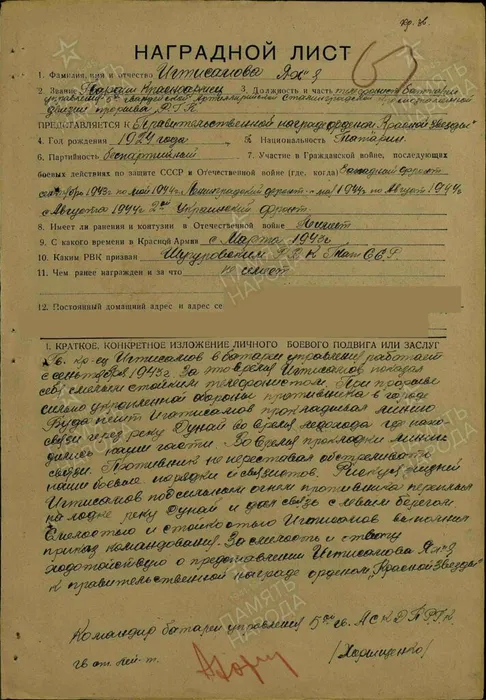 Кр. Зв.
НАГРАДНОЙ ЛИСТ
1. Фамилия, имя и отчество Игтисамова Ях'я
2. Звание Гвардии Красноармеец 3. Должность и часть телефонист батареи
управления 5ой гвардейской Сталинградской
дивизии прорыва РГК
ПРЕДСТАВЛЯЕТСЯ К Правительственной награде орденом „Красной Звезды"
4. Год рождения 1924 года 5. Национальность Татарин
6. Партийность беспартийный 7. Участие в Гражданской войне, последующих
боевых действиях по защите СССР в Отечественной войне (где, когда) Западный фронт
сентябрь 1943г по май 1944г Ленинградский фронт с мая 1944г по Август 1944г
с Августа 1944г 2ой Украинский фронт
8. Имеет ли ранения и контузии в Отечественной войне Не имеет
9. С какого времени в Красной Армии с Марта 1943г
10. Каким РВК призван Шугуровским РВК Тат ССР
11. Чем ранее награжден и за что не имеет
12. Постоянный домашний адрес и адрес се
I. КРАТКОЕ, КОНКРЕТНОЕ ИЗЛОЖЕНИЕ ЛИЧНОГО БОЕВОГО ПОДВИГА ИЛИ ЗАСЛУГ
Гв. кр-ец Игтисамов в батареи управления работает
с сентября 1943г. За это время Игтисамов показал
себя смелым стойким телефонистом. При прорыве
сильно укрепленной обороны противника в городе
Буда пешт Игтисамов прокладывал линию
связи через реку Дунай во время ледохода где нахо-
дились наши части. Во время прокладки линии
связи. Противник не переставал обстреливать
наши боевые порядки и связистов. Рискуя жизней
Игтисамов под сильным огнем противника переплыл
на лодке реку Дунай и дал связь с левым берегом.
Смелостью и стойкостью Игтисамов выполнил
приказ командования. За смелость и отвагу
ходотойствую о предоставлении Игтисамова Ях'я
к правительственной награде орденом „Красной Звезды"
Командир батареи управления 5ой гв. АСКДПРГК
гв. ст. лей-т. /Харищенко/
ПАМЯТЬ НАРОДА